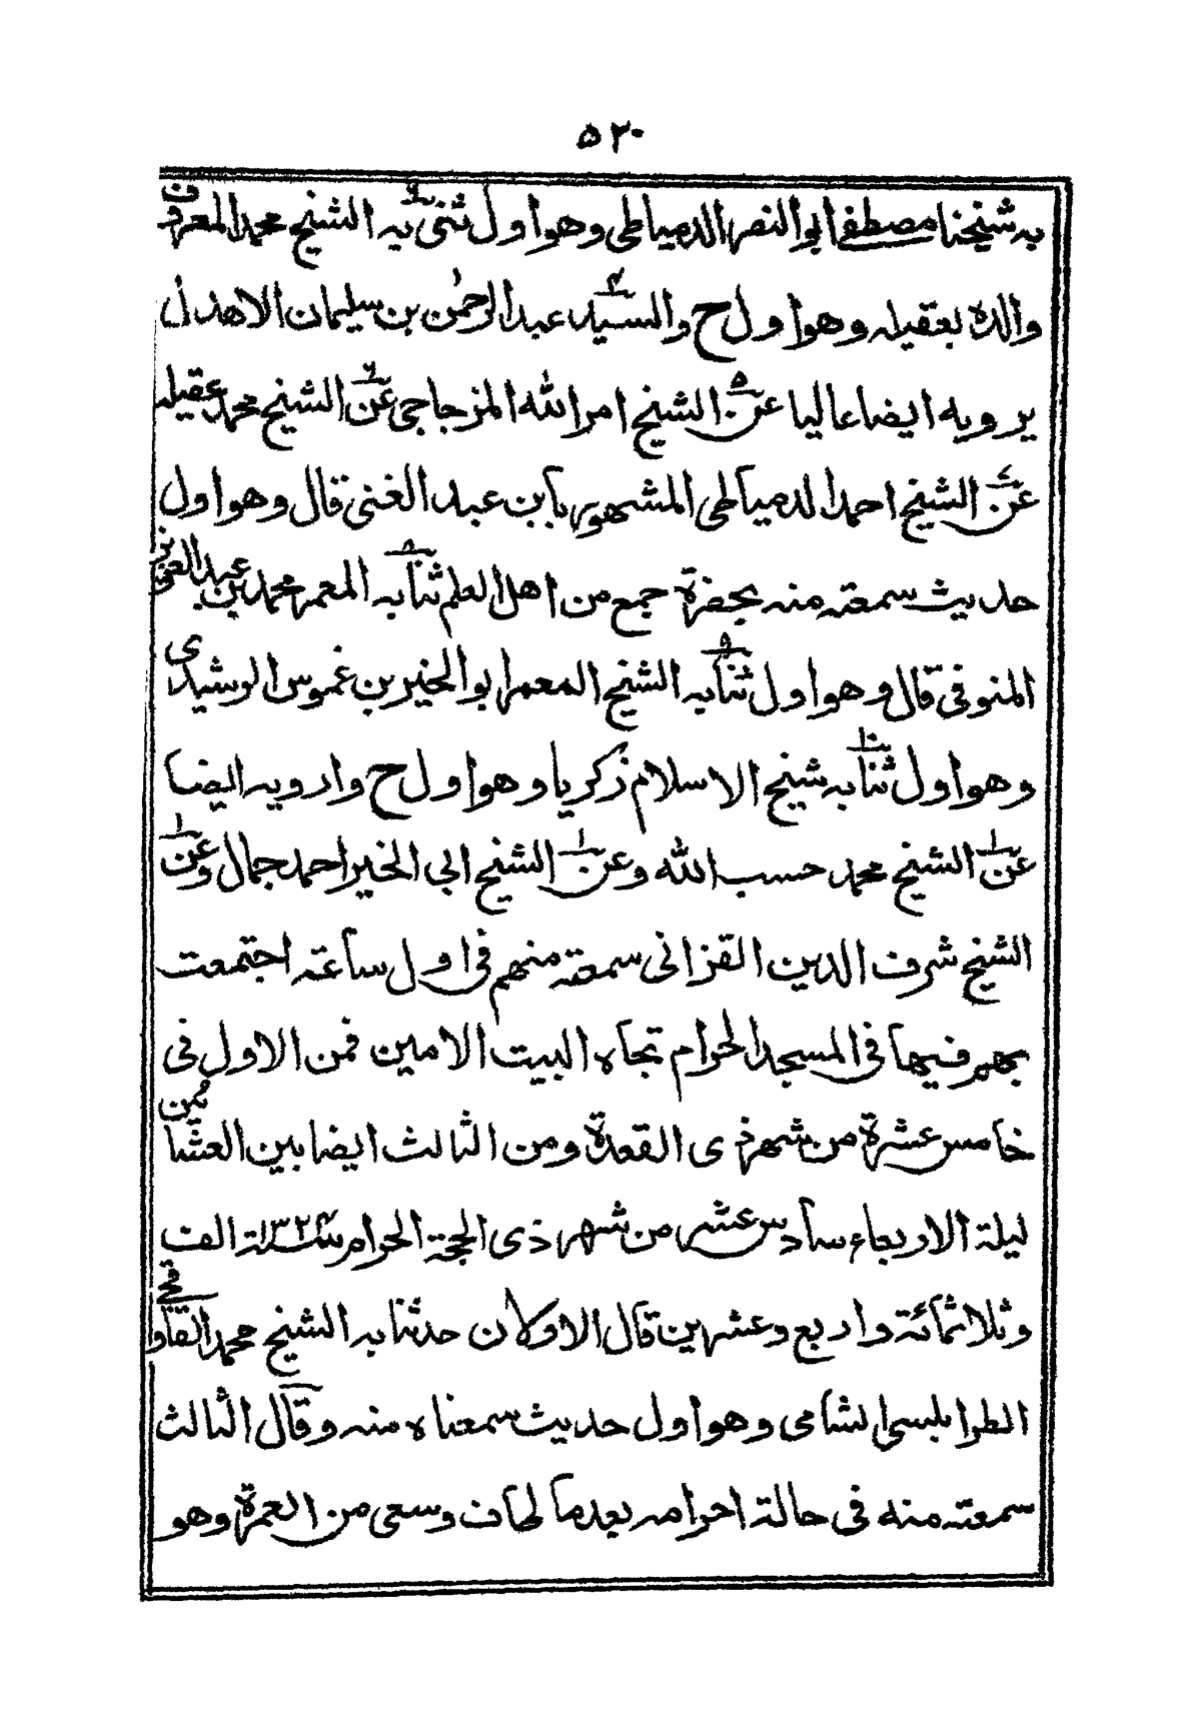 ٥٢٠
به شيخنا مصطفى ابو النصر الدمياطى وهو اول ثنى به الشيخ محمد المعروف
والده بعقيله وهو اول ح والسيد عبد الرحمٰن بن سليمان الاهدل
يرويه ايضا عاليا عن الشيخ امر الله المزجاجى عن الشيخ محمد عقيله
عن الشيخ احمد الدمياطى المشهور بابن عبد الغنى قال وهو اول
حديث سمعته منه بحضرة جمع من اهل العلم ثنا به المعمر محمد بن عبد العزيز
المنوفى قال وهو اول ثنا به الشيخ المعمر ابو الخير بن غموس الرشيدى
وهو اول ثنا به شيخ الاسلام زكريا وهو اول ح وارويه ايضا
عن الشيخ محمد حسب الله وعن الشيخ ابى الخير احمد جمال وعن
الشيخ شرف الدين القزانى سمعته منهم فى اول ساعة اجتمعت
بهم فيها فى المسجد الحرام تجاه البيت الامين فمن الاول فى
خامس عشرة من شهر ذى القعدة ومن الثالث ايضا بين العشائين
ليلة الاربعاء سادس عشر من شهر ذى الحجة الحرام سنة ١٣٢٤ الف
وثلاثمائة واربع وعشرين قال الاولان حدثنا به الشيخ محمد القاوقجى
الطرابلسى الشامى وهو اول حديث سمعناه منه وقال الثالث
سمعته منه فى حالة احرامه بعد ما طاف وسعى من العمرة وهو